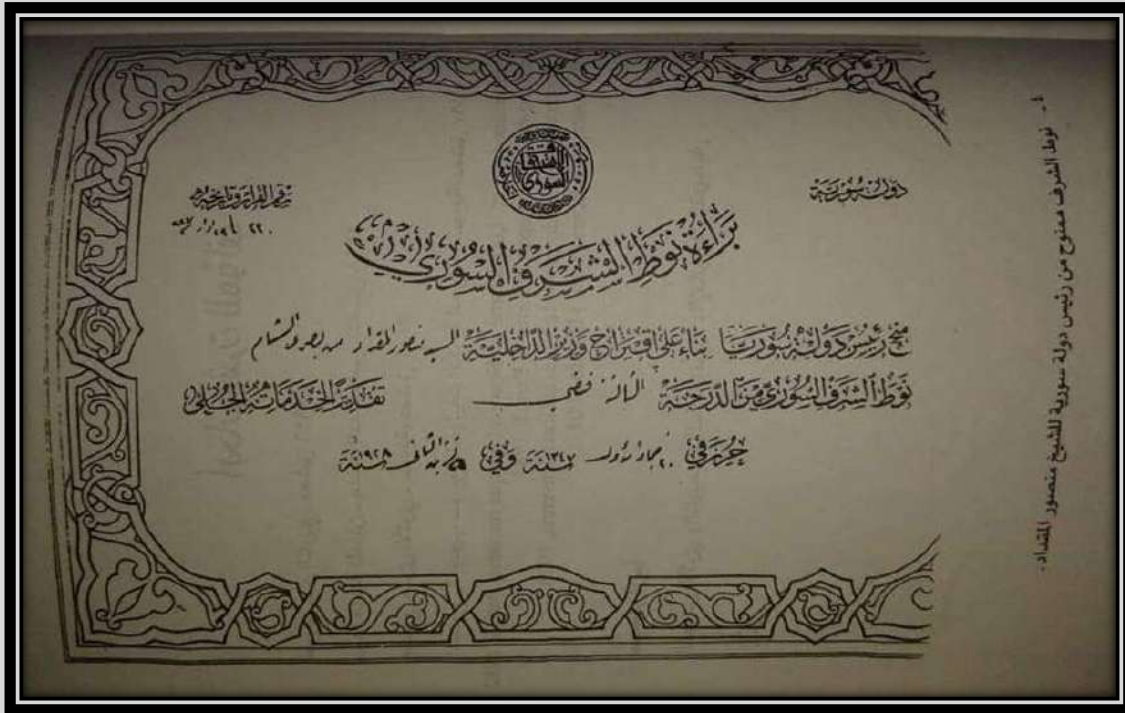 دولة سورية
الاستحقاق
السوري
رقم القرار وتاريخه
٢٢٠
براءة نوط الشرف السوري
منح رئيس دولة سوريا بناء على اقتراح وزير الداخلية السيد منصور المقداد من بصرى الشام
نوط الشرف السوري من الدرجة الثالثة فضي تقديرا لخدماته الجلى
حرر في ٢٠ جماد الأول سنة ١٣٤٧ وفي تشرين الثاني سنة ١٩٢٨
٤ - نوط الشرف ممنوح من رئيس دولة سورية للشيخ منصور المقداد.